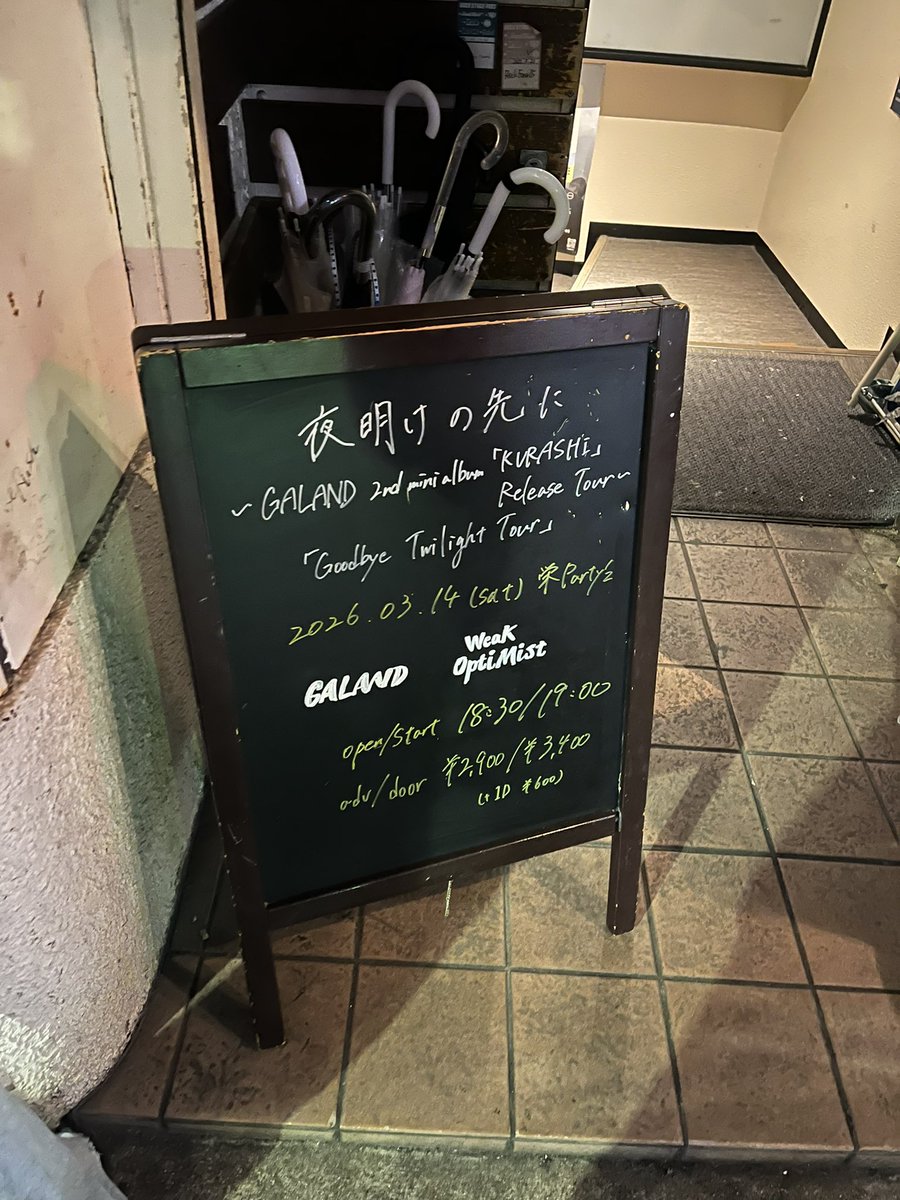 夜明けの先に
~GALAND 2nd mini album 「KURASHI」
Release Tour~
「Goodbye Twilight Tour」
2026.03.14 (sat) 栄Party'z
GALAND
Weak
OptiMist
open/Start 18:30/19:00
adv/door ¥2,900/¥3,400
(+1D ¥600)